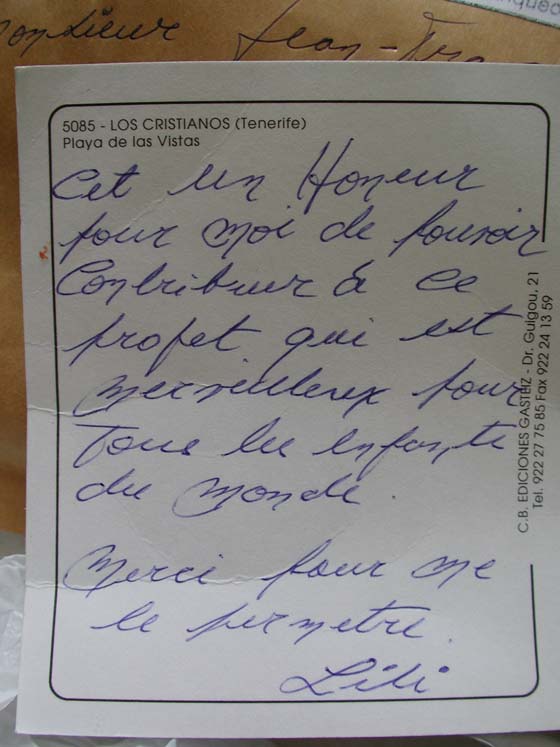 Monsieur Jean-Fra
5085 - LOS CRISTIANOS (Tenerife)
Playa de las Vistas
Cet un Honeur
pour moi de pouvoir
Contribuer à ce
projet qui est
merveilleux pour
Tous les enfants
du monde.
Merci pour me
le permetre.
Lili
C.B. EDICIONES GASTEIZ - Dr. Guigou, 21
Tel. 922 27 75 85 Fax 922 24 13 59